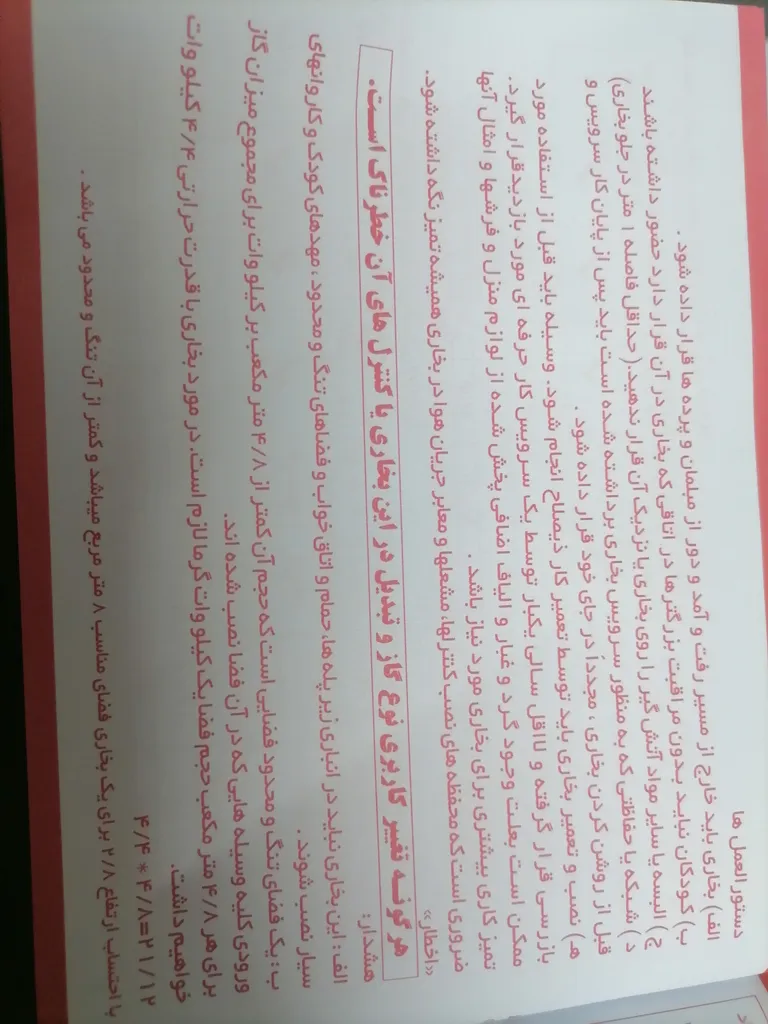 دستور العمل ها
الف) بخاری باید خارج از مسیر رفت و آمد و دور از مبلمان و پرده ها قرار داده شود .
ب) کودکان نباید بدون مراقبت بزرگترها در اتاقی که بخاری در آن قرار دارد حضور داشته باشند
ج) البسه یا سایر مواد آتش گیر را روی بخاری یا نزدیک آن قرار ندهید.(حداقل فاصله ۱ متر در جلو بخاری)
د) شبکه یا حفاظتی که به منظور سرویس بخاری برداشته شده است باید پس از پایان کار سرویس و
قبل از روشن کردن بخاری ، مجدداً در جای خود قرار داده شود .
هـ) نصب و تعمیر بخاری باید توسط تعمیر کار ذیصلاح انجام شود. وسیله باید قبل از استفاده مورد
بازرسی قرار گرفته و لااقل سالی یکبار توسط یک سرویس کار حرفه ای مورد بازدید قرار گیرد.
ممکن است بعلت وجود گرد و غبار و الیاف اضافی پخش شده از لوازم منزل و فرشها و امثال آنها
تمیز کاری بیشتری برای بخاری مورد نیاز باشد .
ضروری است که محفظه های نصب کنترلها، مشعلها و معابر جریان هوا در بخاری همیشه تمیز نگه داشته شود.
«اخطار»
هر گونه تغییر کاربری نوع گاز و تبدیل در این بخاری یا کنترل های آن خطرناک است.
هشدار:
الف : این بخاری نباید در انباری زیر پله ها، حمام و اتاق خواب و فضاهای تنگ و محدود ، مهدهای کودک و کاروانهای
سیار نصب شوند.
ب : یک فضای تنگ و محدود فضایی است که حجم آن کمتر از ۴/۸ متر مکعب بر کیلو وات برای مجموع میزان گاز
ورودی کلیه وسیله هایی که در آن فضا نصب شده اند.
برای هر ۴/۸ متر مکعب حجم فضا یک کیلو وات گرما لازم است. در مورد بخاری با قدرت حرارتی ۴/۴ کیلو وات
خواهیم داشت.
۴/۴ * ۴/۸=۲۱/۱۲
با احتساب ارتفاع ۲/۸ برای یک بخاری فضای مناسب ۸ متر مربع میباشد و کمتر از آن تنگ و محدود می باشد .